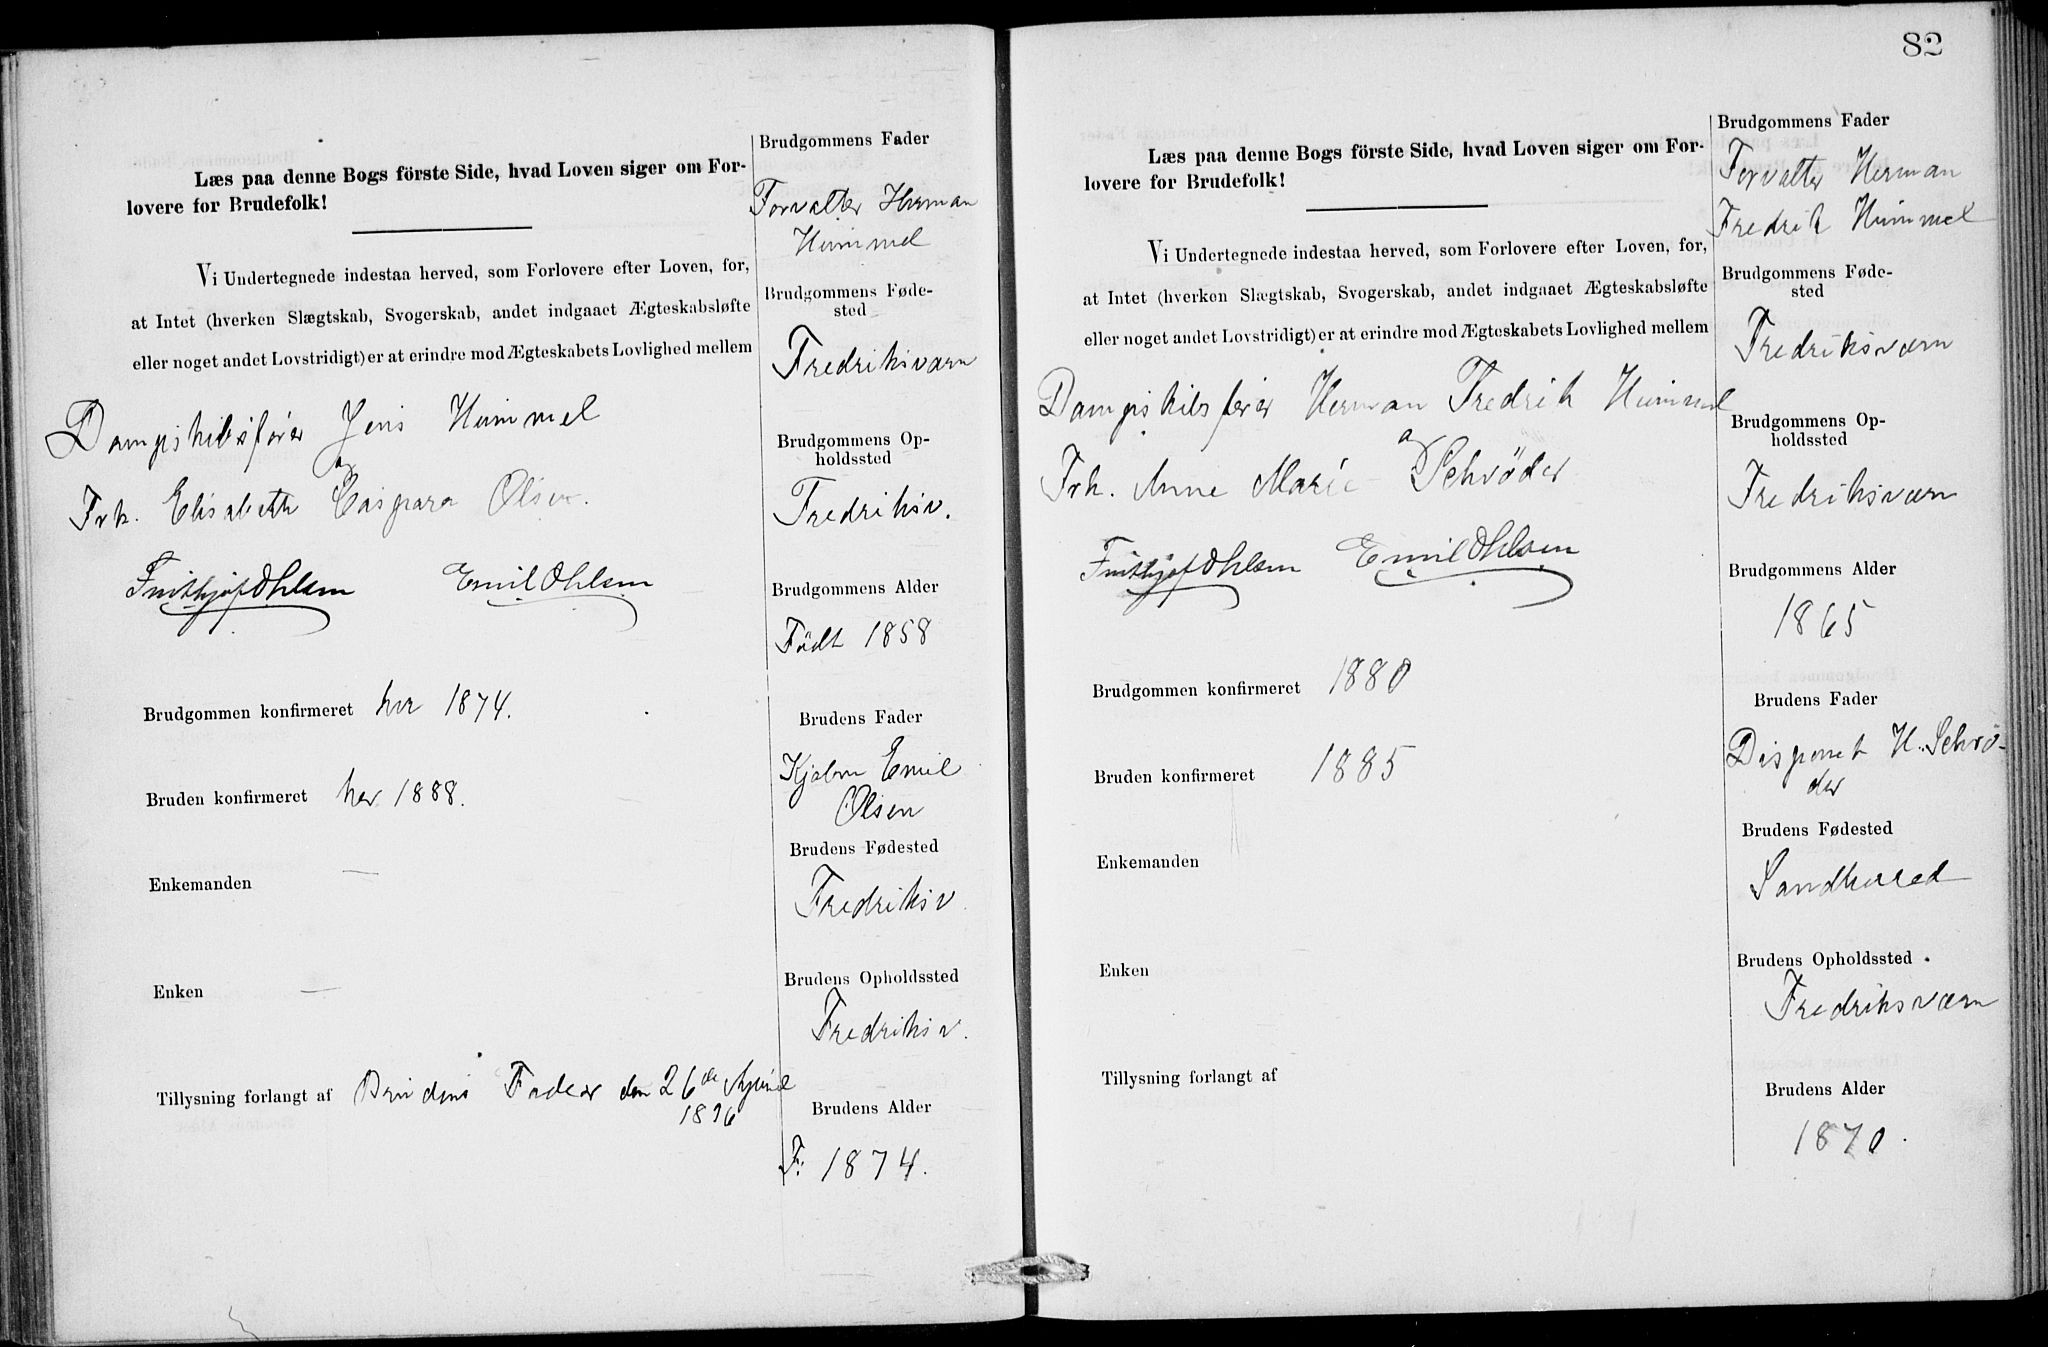 Læs paa denne Bogs förste Side, hvad Loven siger om For-
lovere for Brudefolk!
Vi Undertegnede indestaa herved, som Forlovere efter Loven, for,
at Intet (hverken Slægtskab, Svogerskab, andet indgaaet Ægteskabsløfte
eller noget andet Lovstridigt) er at erindre mod Ægteskabets Lovlighed mellem
Dampskibsfører Jens Hummel
og
Frk. Elisabeth Caspara Olsen.
Frithjof Ohlsen Emil Ohlsen
Brudgommen konfirmeret her 1874.
Bruden konfirmeret her 1888.
Enkemanden —
Enken —
Tillysning forlangt af Brudens Fader den 26de April
1896
Brudgommens Fader
Forvalter Herman
Hummel
Brudgommens Føde-
sted
Fredriksværn
Brudgommens Op-
holdssted
Fredriksv.
Brudgommens Alder
Født 1858
Brudens Fader
Emil
Olsen
Brudens Fødested
Fredriksv
Brudens Opholdssted
Fredriksv.
Brudens Alder
F. 1874.
82
Læs paa denne Bogs förste Side, hvad Loven siger om For-
lovere for Brudefolk!
Vi Undertegnede indestaa herved, som Forlovere efter Loven, for,
at Intet (hverken Slægtskab, Svogerskab, andet indgaaet Ægteskabsløfte
eller noget andet Lovstridigt) er at erindre mod Ægteskabets Lovlighed mellem
Dampskibsfører Herman Fredrik Hummel
og
Frk. Anne Marie Schrøder
Frithjof Ohlsen Emil Ohlsen
Brudgommen konfirmeret 1880
Bruden konfirmeret 1885
Enkemanden
Enken
Tillysning forlangt af
Brudgommens Fader
Forvalter Herman
Fredrik Hummel
Brudgommens Føde-
sted
Fredriksværn
Brudgommens Op-
holdssted
Fredriksværn
Brudgommens Alder
1865
Brudens Fader
Disponent H. Schrø-
der
Brudens Fødested
Sandherred
Brudens Opholdssted
Fredriksværn
Brudens Alder
1870.